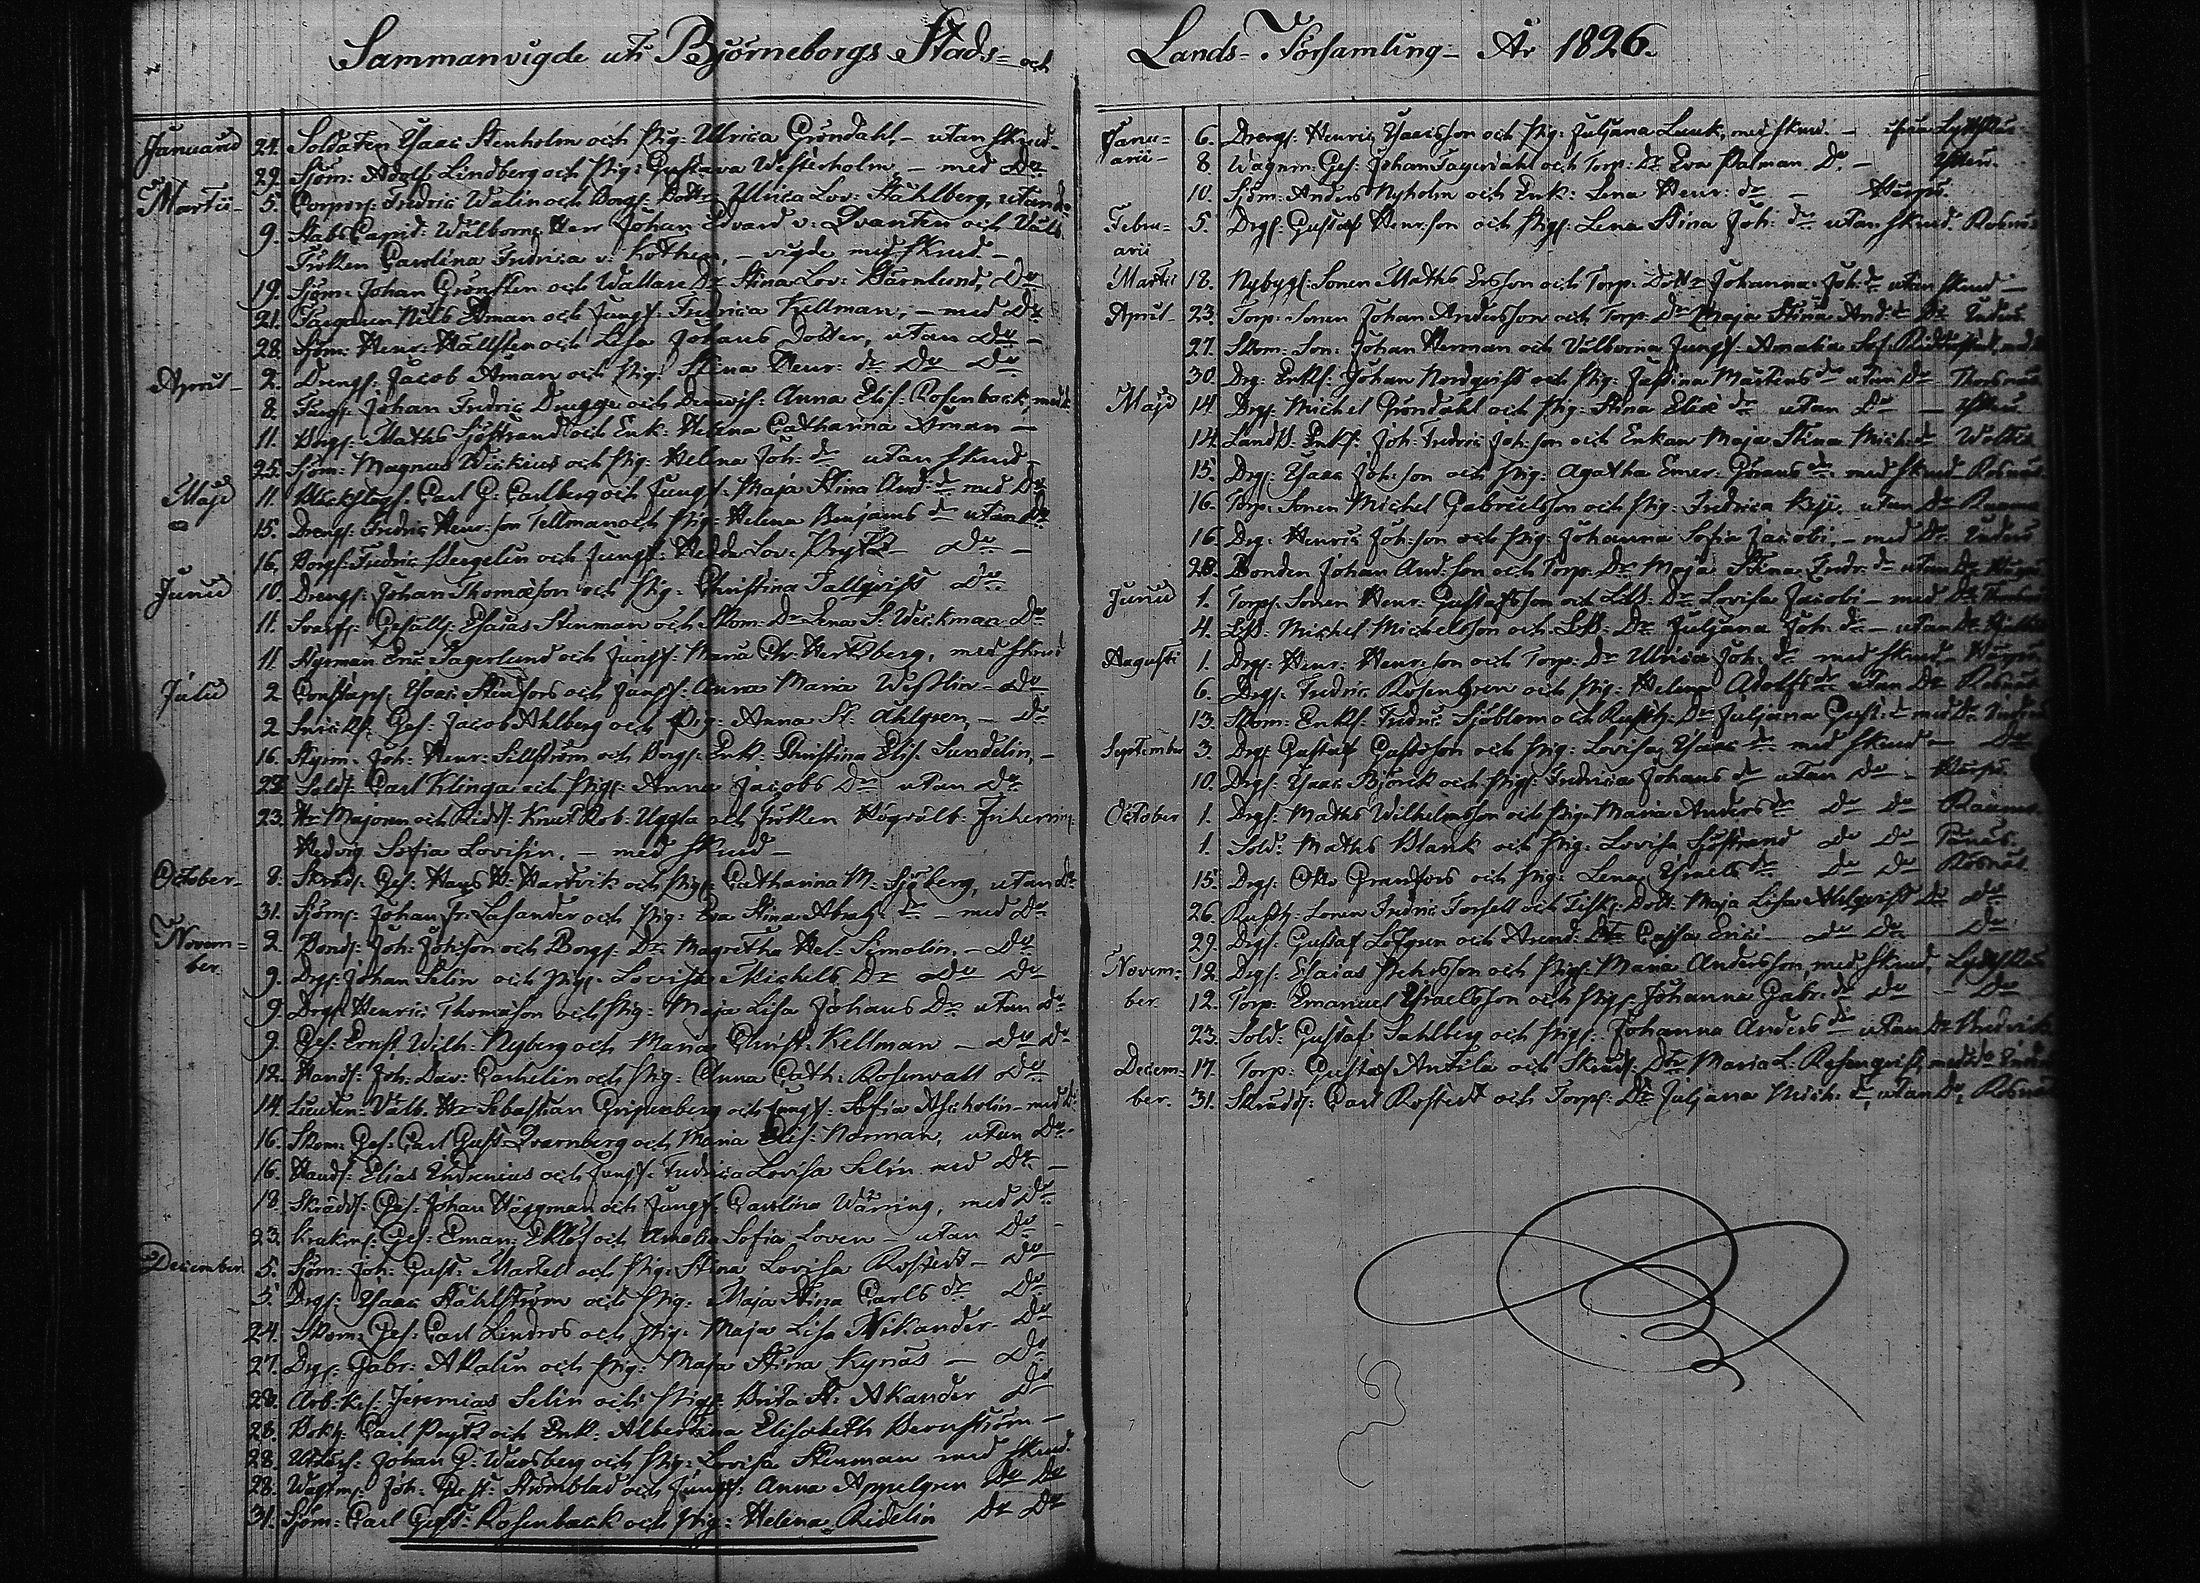 Sammanvigde uti Björneborgs Stads- och
Januarii 24. Soldaten Isaac Stenholm och Pig: Ulrica Gröndahl, - utan skrud -
29. Sjöm: Adolf Lindberg och Pig: Gustava Westerholm, - med Do
Martii 5. Corpors: Fredric Walin och Borgs: Dottr Ulrica Lov: Ståhlberg, utan do
9. Stabs Capit: Wälborne Herr Johan Edvard v: Qvanten och Välb
Fröken Carolina Fredrica v. Kothen, - vigde med skrud -
19. Sjöm: Johan Grönsten och Wallare Dr Stina Lov: Bärnlund, Do
21. Färgaren Nils Åman och Jungf: Fredrica Kellman, - med Do
28. Sjöm: Henr: Hällsten och Lisa Johans Dotter, utan Do -
April 2. Drengs: Jacob Åman och Pig: Stina Henr: dr Do Do
8. Johan Fredric Drugge och Anna Elis: Rosenback, med
11. Borgs: Maths Sjöstrand och Enk: Helena Catharina Åman -
25. Sjöm: Magnus Wickius och Pig: Helena Joh: dr utan skrud
Maji 11. Carl G: Carlberg och Jungf: Maja Stina And: dr med Do
15. Drengs: Fredric Henr: son Tellman och Pig: Helena Benjams dr utan Do
16. Borgs: Fredric Bergelin och Jungf: Hedda Lov: Prytz Do -
Junii 10. Drengs: Johan Thomæson och Pig: Christina Tallqvist Do
11. Svarfv: Gesälls: Esaias Stenman och Skom: Dr Lena S: Weckman Do
11. Styrman Eric Lagerlund och Jungf: Maria Chr: Hertzberg, med skrud
Julii 2 Constaps: Isaac Stenfors och Jungf: Anna Maria Westlin - Do
2 Snick: Ges: Jacob Ahlberg och Pig: Anna St: Ahlgren, - Do
16. Styrm: Joh: Henr: Sillström och Borgs: Enk: Christina Elis: Sundelin, -
23. Sold: Carl Klinga och Pigs: Anna Jacobs Dr utan Do
23. Hr Majoren och Ridd: Knut Rob: Uggla och Fröken Högvälb:
Hedvig Sofia Lovisin. - med skrud -
October 8. Skrädd: Ges: Hans H: Hartvik och Pigs: Catharina M: Sjöberg, utan Do
31. Sjöm: Johan Fr: Lasander och Pig: Eva Stina Abrah: dr - med Do
November. 2. Bonds: Joh: Johsson och Borgs: Dr Magretha Hel: Simolin, - Do
9. Drgs: Johan Selin och Pigs: Lovisa Michels Dr Do Do
9. Drgs: Henric Thomæson och Pig: Maja Lisa Johans Dr utan Do
9. Ges: Ernst Wilh: Nyberg och Maria Christ: Kellman - Do Do
12. Hands: Joh: Dav: Carhelin och Pig: Anna Cath: Rosenvall Do
14. Lieuten: Välb. Hr Sebastian Gripenberg och Jungf: Sofia Asicholin - med Do
16. Skom: Ges: Carl Gust: Qvarnberg och Maria Elis: Norman, utan Do
16. Hands: Elias Indrenius och Jungf: Fredrica Lovisa Selin med Do -
18. Skrädd: Ges: Johan Häggman och Jungf: Carolina Wäring, med Do
23. Krukm: Ges: Eman: Eklöf och Amalia Sofia Loven - utan Do
December 5. Sjöm: Joh: Gust: Martell och Pig: Stina Lovisa Rostedt - Do
5. Drgs: Isaac Ståhlström och Pig: Maja Stina Carls dr Do
24. Skom: Ges: Carl Lindros och Pig: Maja Lisa Nikander Do
27. Drgs: Gabr: Akalin och Pig: Maja Stina Kynäs - Do
28. Arb: k: Jeremias Selin och Pigs: Brita St: Akander Do
28. Bokh: Carl Prytz och Enk: Albertina Elisabeth Bernström -
28. Johan G: Warsberg och Pig: Lovisa Stenman med skrud.
28. Joh: Gust: Strömblad och Jungf: Anna Appelgren Do Do
31. Sjöm: Carl Gust: Rosenback och Pig: Helena Ridelin Do Do
Lands- Församling - År 1826.
Januarii - 6. Drengs: Henric Isacsson och Pig: Juljana Luuk, med skrud. -
8 Wagnm: Ges: Johan Fagerdahl och Torp: Dr Eva Palman Do. -
10. Sjöm: Anders Nyholm och Enk: Lena Henr: dr -
Februarii 5. Drgs: Gustaf Henrsson och Pigs: Lena Stina Joh: dr utan skrud.
Martii 12. Nybygg: Sonen Maths Ersson och Torp: Dottr Johanna Joh: dr utan skrud -
April 23. Torp: Sonen Johan Andersson och Torp: Dr Maja Stina And: dr Do
27. Skom: Son: Johan Herman och Välborna Jungf: Amalia Sof:
30. Drg: Enkl: Johan Nordqvist och Pig: Justina Mårtens dr utan Do
Maji 14. Drgs: Michel Gröndahl och Pig: Stina Eliæ dr utan Do -
14. Landb: Enkl: Joh: Fredric Johsson och Enkan Maja Stina Mich: dr
15. Drgs: Isaac Johsson och Pig: Agatha Emer: Görans dr med skrud
16. Torp: Sonen Michel Gabrielsson och Pig: Fredrica utan Do Rauma
16. Drg: Henric Johsson och Pig: Johanna Sofia Jacobi, - med Do
28. Bonden Johan Andsson och Torp: Dr Maja Stina Fredr: dr utan Do
Junii 1. Torp: Sonen Henr: Gustafsson och Dr Lovisa Jacobi - med Do
4. Michel Michelsson och Dr Juljana Joh: dr - utan Do
Augusti 1. Drgs: Henr: Henrsson och Torp: Dr Ulrica Joh: dr med skrud
6. Drgs: Fredric Rosengren och Pig: Helena Adolfs dr utan Do
13. Skom: Enkl: Fredric Sjöblom och Rusth: Dr Juljana Gust: dr med Do
September 3. Drgs: Gustaf Gustsson och Pig: Lovisa Isaac dr med skrud - Do
10. Drgs: Isaac Björck och Pigs: Fredrica Johans dr utan do -
October 1. Drgs: Maths Wilhelmsson och Pig: Maria Anders dr Do Do Raumo
1. Sold: Maths Blank och Pig: Lovisa Sjöstrand do Do
15. Drgs: Otto Granfors och Pig: Lena Israels dr Do Do Rosnäs
26. Rusth: Sonen Fredric Forsell och Fisk: Dott: Maja Lisa Ahlqvist Do Do
29. Drgs: Gustaf Löfgren och Arend: Dtr Cajsa Erici do Do Do
November 12. Drgs: Esaias Mickelsson och Pigs: Maria Andersson, med skrud,
12. Torp: Emanuel Israelsson och Pigs: Johanna Gabr: dr do - Do
23. Sold: Gustaf Sahlberg och Pigs: Johanna Anders dr utan do
December. 17. Torp: Gustaf Antila och Skräd: Dtr Maria L. Rosenqvist, med do
31. Skrädd: Carl Rostedt och Torps: Dr Juljana Mich: dr, utan Do,